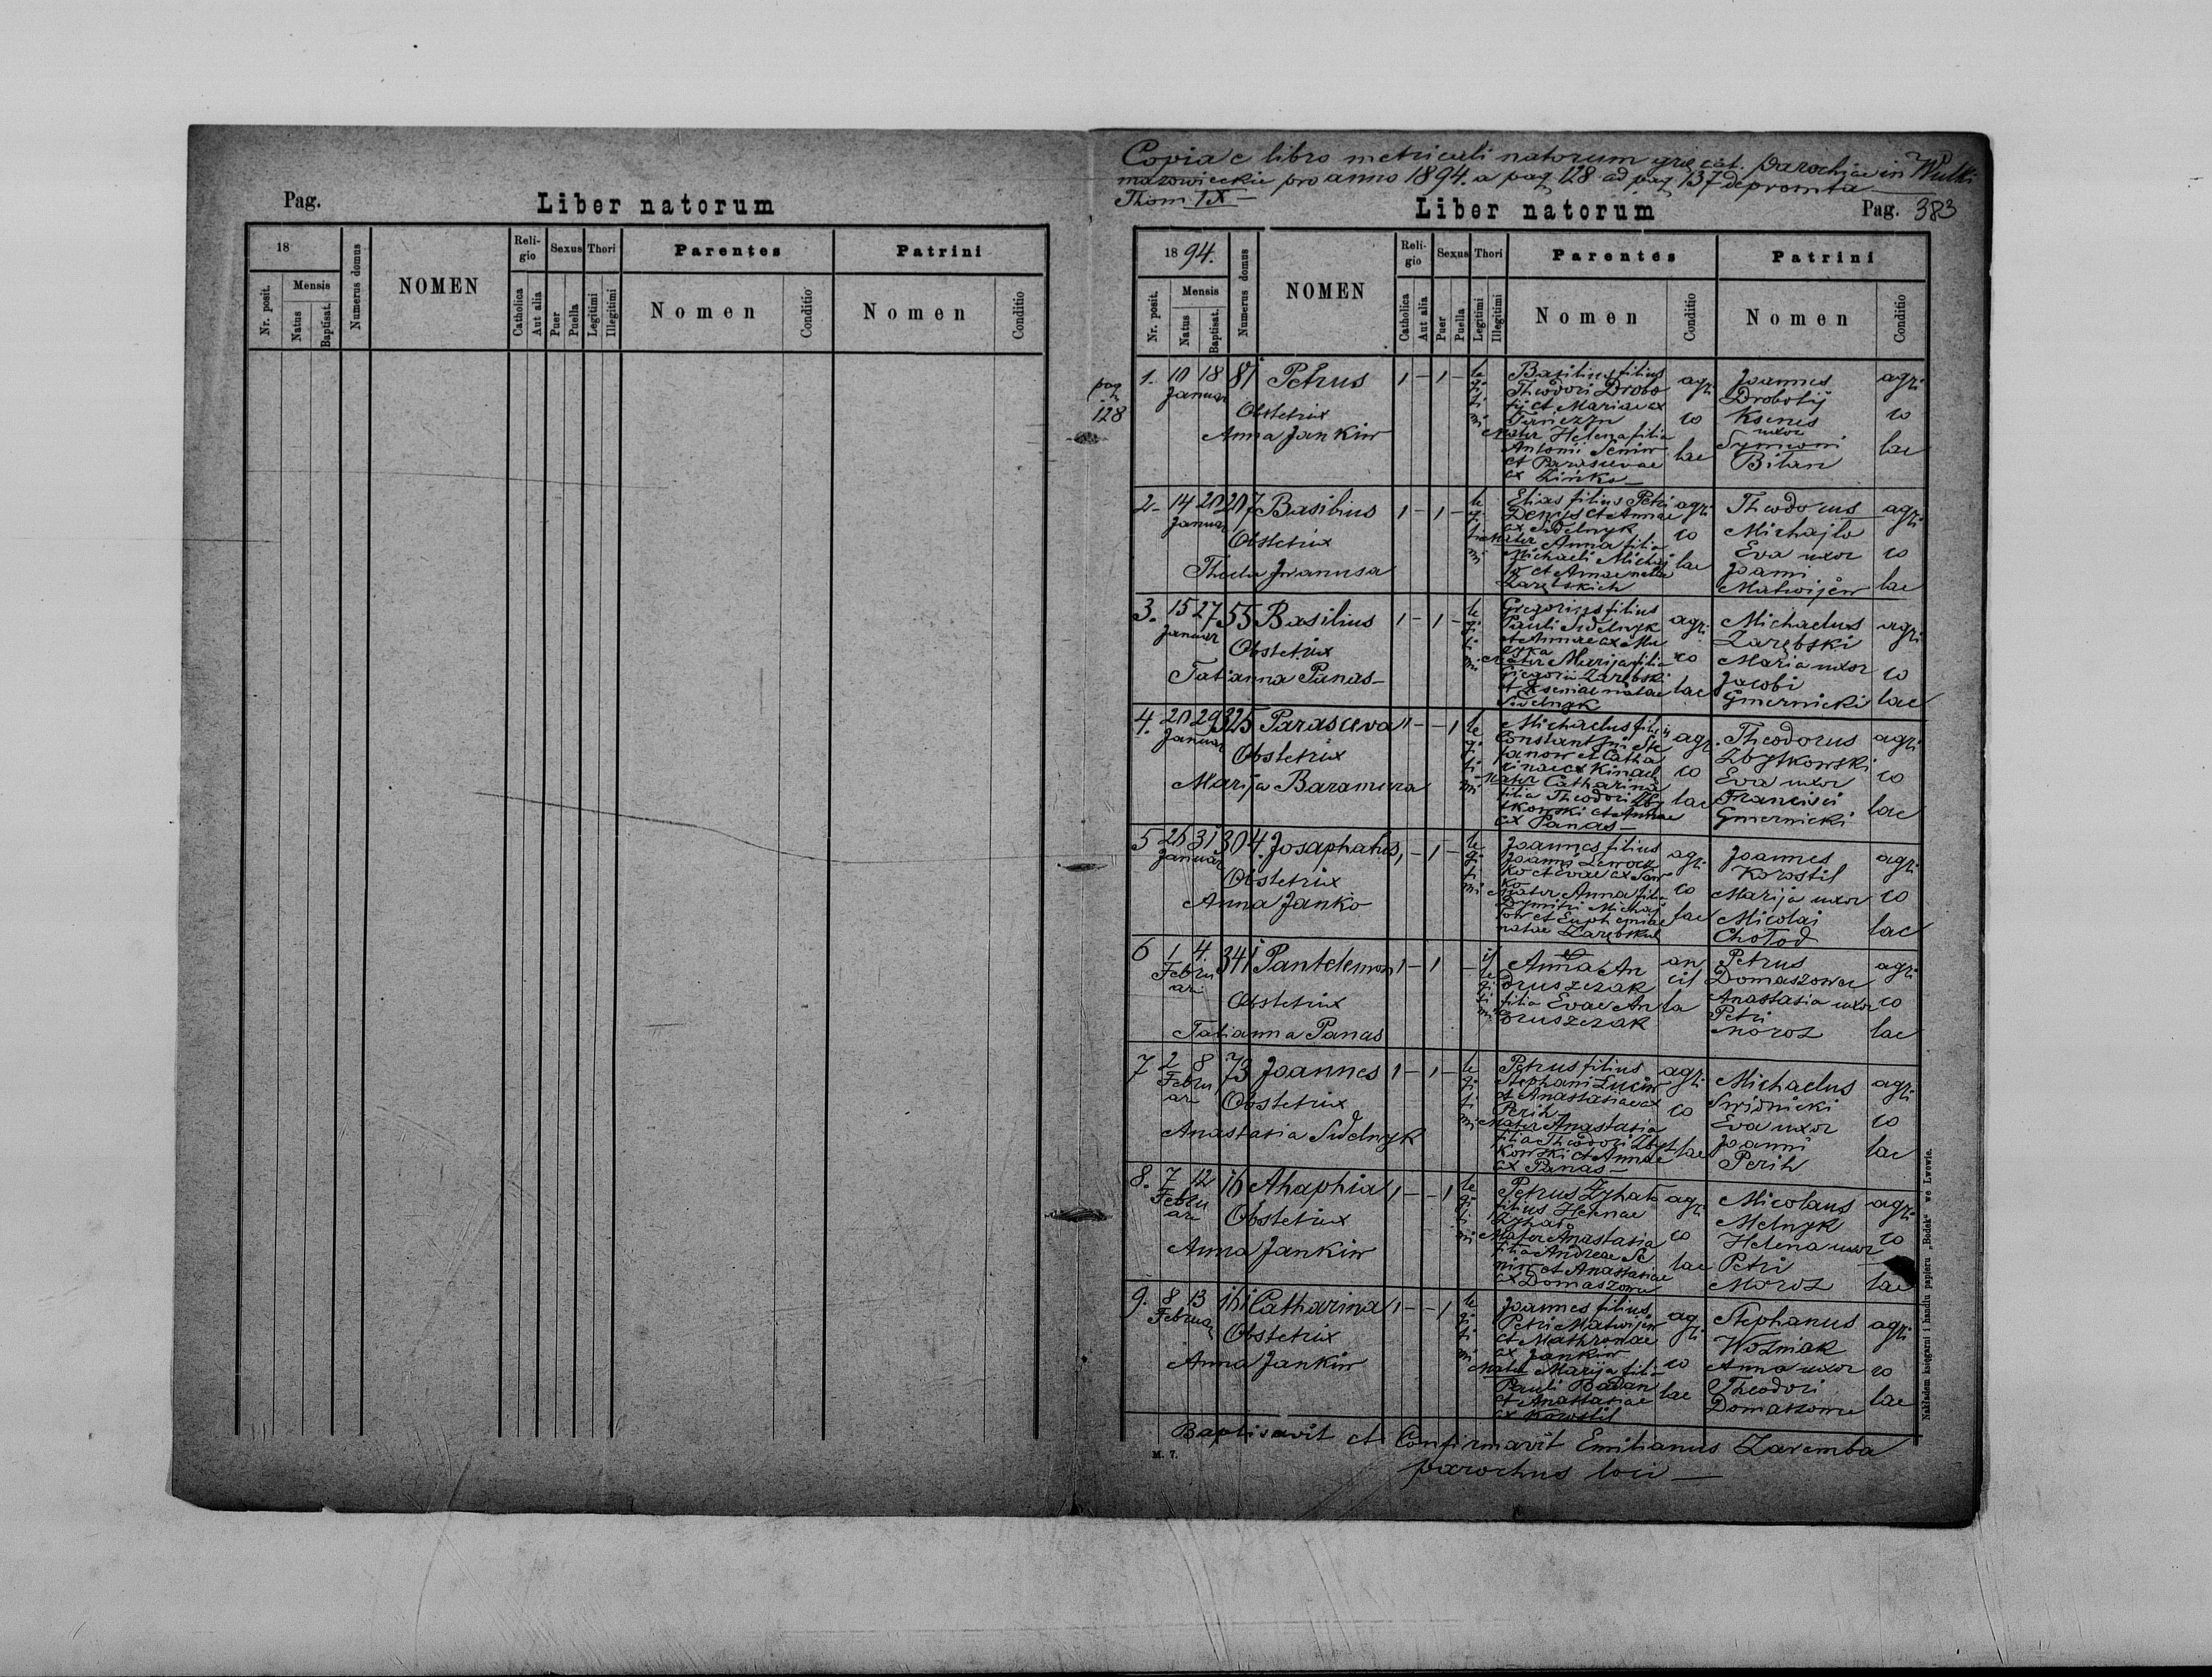 Pag.
Liber natorum
18
Nr. posit.
Mensis
Natus
Baptisat.
Numerus domus
NOMEN
Religio
Catholica
Aut alia
Sexus
Puer
Puella
Thori
Legitimi
Illegitimi
Parentes
Nomen
Conditio
Patrini
Nomen
Conditio
Copia e libro metriculi natorum gr. cat. parochiae in Wulki
mazowieckie pro anno 1894. a pag 128 ad pag 137 depromta
Thom IX
Liber natorum
Pag. 383
1894.
Nr. posit.
Mensis
Natus
Baptisat.
Numerus domus
NOMEN
Religio
Catholica
Aut alia
Sexus
Puer
Puella
Thori
Legitimi
Illegitimi
Parentes
Nomen
Conditio
Patrini
Nomen
Conditio
pag
128
1. 10 18 Januar 87 Petrus 1 - 1 - legitimi
Obstetrix
Anna Jankiw
Basilius filius
Theodori Drobo
tij et Mariae ex
Mater Helena filia
Antonii Seniw
et Parascevae
ex Zinko
agricolae
Joannes
Drobotij
Ksenes
uxor
Symeoni
Bilan
agricolae
2 14 20 Januar 207 Basilius 1 - 1 - legitimi
Obstetrix
Thecla Iwanusa
Elias filius Petri
Denys et Annae
ex Sidelnyk
Mater Anna filia
Michaeli Michaj
lo et Annae natae
Zarębskich
agricolae
Theodorus
Michajlo
Eva uxor
Joanni
Matwijew
agricolae
3. 15 27 Januar 55 Basilius 1 - 1 - legitimi
Obstetrix
Tatianna Panas
Gregorius filius
Pauli Sidelnyk
et Annae ex Mu
zyka
Mater Marija filia
Gregorii Zarębski
et Kseniae natae
Sidelnyk
agricolae
Michaelus
Zarębski
Maria uxor
Jacobi
Gmernicki
agricolae
4. 20 29 Januar 325 Parasceva 1 - - 1 legitimi
Obstetrix
Marija Baramura
Michaelus filius
Constantini Ste
fanow et Catha
rinae ex Kinach
Mater Catharina
filia Theodori Zby
tkowski et Annae
ex Panas
agricolae
Theodorus
Zbytkowski
Eva uxor
Francisci
Gmernicki
agricolae
5 26 31 Januar 304. Josaphatus 1 - 1 - legitimi
Obstetrix
Anna Janko
Joannes filius
Joanni Lewocz
ko et Evae ex Saw
ko
Mater Anna filia
Dymitri Michaj
low et Euphemiae
natae Zarębski
agricolae
Joannes
Korostil
Marija uxor
Nicolai
Chołod
agricolae
6 1 4. Februari 341 Pantelemon 1 - 1 - illegitimi
Obstetrix
Tatianna Panas
Anna An
druszczak
filia Evae An
druszczak
ancilla
Petrus
Domaszowec
Anastasia uxor
Petri
Moroz
agricolae
7 2 8 Februar 73 Joannes 1 - 1 - legitimi
Obstetrix
Anastasia Sidelnyk
Petrus filius
Stephani Luciw
et Anastasiae ex
Perih
Mater Anastasia
filia Theodori Zbyt
kowski et Annae
ex Panas
agricolae
Michaelus
Swidnicki
Eva uxor
Joanni
Perih
agricolae
8. 7 12 Februar 16 Ahaphia 1 - - 1 legitimi
Obstetrix
Anna Jankiw
Petrus Zyhało
filius Helenae
Zyhało
Mater Anastasia
filia Andreae Se
niw et Anastasiae
ex Domaszowec
agricolae
Nicolaus
Melnyk
Helena uxor
Petri
Moroz
agricolae
9. 8 13 Februar 161 Catharina 1 - - 1 legitimi
Obstetrix
Anna Jankiw
Joannes filius
Petri Matwijew
et Mathronae
ex Jankiw
Mater Marija filia
Pauli Badan
et Anastasiae
ex Korostil
agricolae
Stephanus
Wożniak
Anna uxor
Theodori
Domaszowec
agricolae
Baptisavit et Confirmavit Emilianus Zaremba
parochus loci
M. 7.
Nakładem księgarni i handlu papieru „Bodek" we Lwowie.